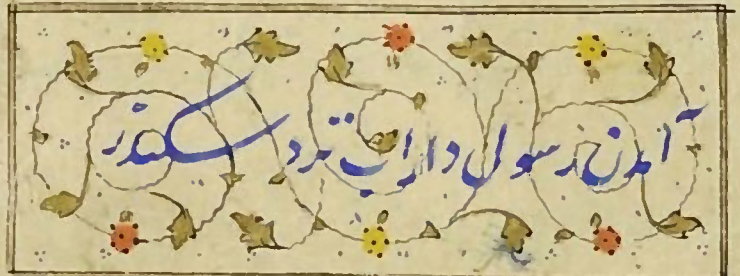 آمدن رسول داراب نزد سکندر